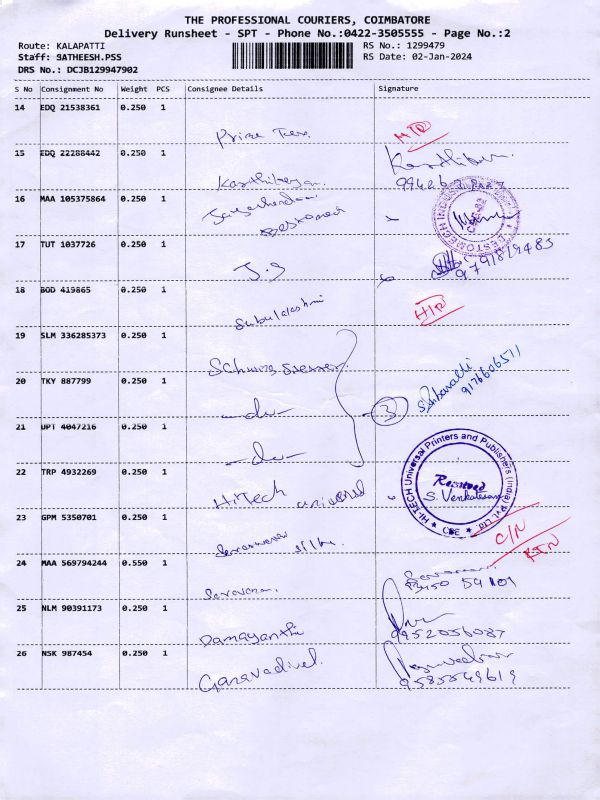 THE PROFESSIONAL COURIERS, COIMBATORE
Delivery Runsheet - SPT - Phone No.:0422-3505555 - Page No.:2
Route: KALAPATTI
RS No.: 1299479
Staff: SATHEESH.PSS
RS Date: 02-Jan-2024
DRS No.: DCJB129947902
S No Consignment No Weight PCS Consignee Details Signature
14 EDQ 21538361 0.250 1
15 EDQ 22288442 0.250 1
Karthikeyan
16 MAA 105375864 0.250 1
17 TUT 1037726 0.250 1
J.S
9791819483
18 BOD 419865 0.250 1
Subulakshmi
19 SLM 336285373 0.250 1
Schwing Stetter
20 TKY 887799 0.250 1
-do-
3
9176606571
21 UPT 4047216 0.250 1
-do-
22 TRP 4932269 0.250 1
Hitech universal
HI-TECH Universal Printers and Publishers (India) Pvt. Ltd.
Received
S. Venkatesan
CBE
23 GPM 5350701 0.250 1
C/N
RTN
24 MAA 569794244 0.550 1
Saravana
25 NLM 90391173 0.250 1
Damayanthi
9952056087
26 NSK 987454 0.250 1
9585549619